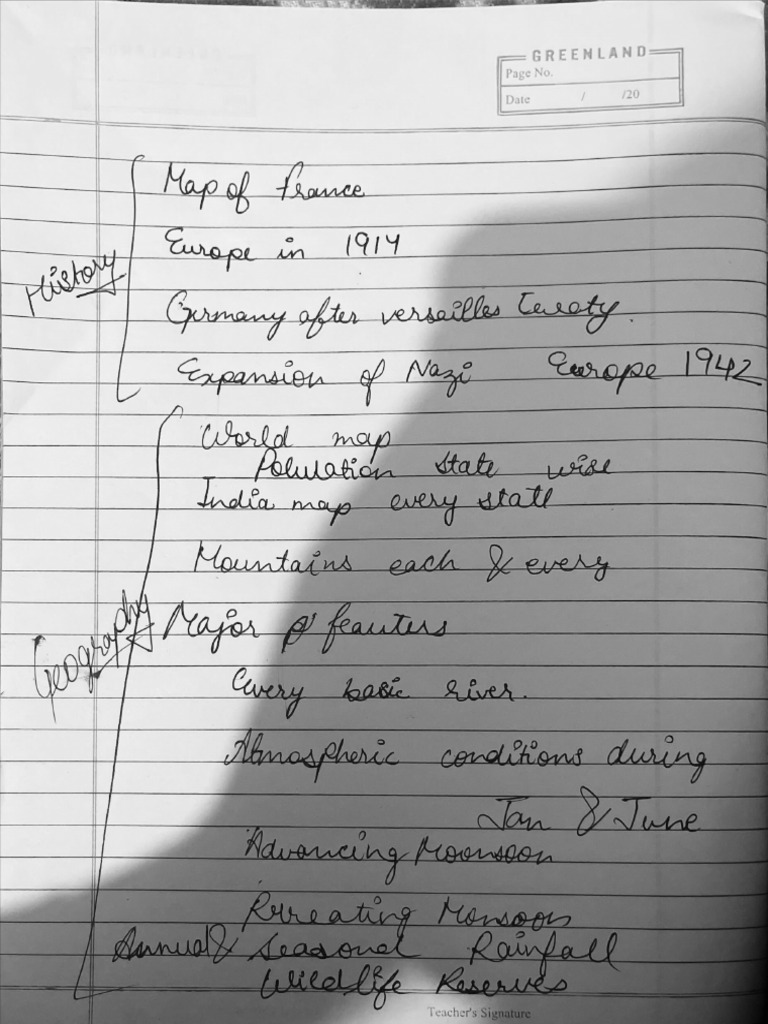 GREENLAND
Page No.
Date / /20
Map of France
Europe in 1914
Germany after versailles Treaty.
Expansion of Nazi Europe 1942
History
World map
Polulation state wise
India map every state
Mountains each & every
Major p feauters
Geography
Every basic river.
Atmospheric conditions during
Jan & June
Advancing Moonsoon
Rrreating Monsoon
Annual & Seasonal Rainfall
Wildlife Reserves
Teacher's Signature